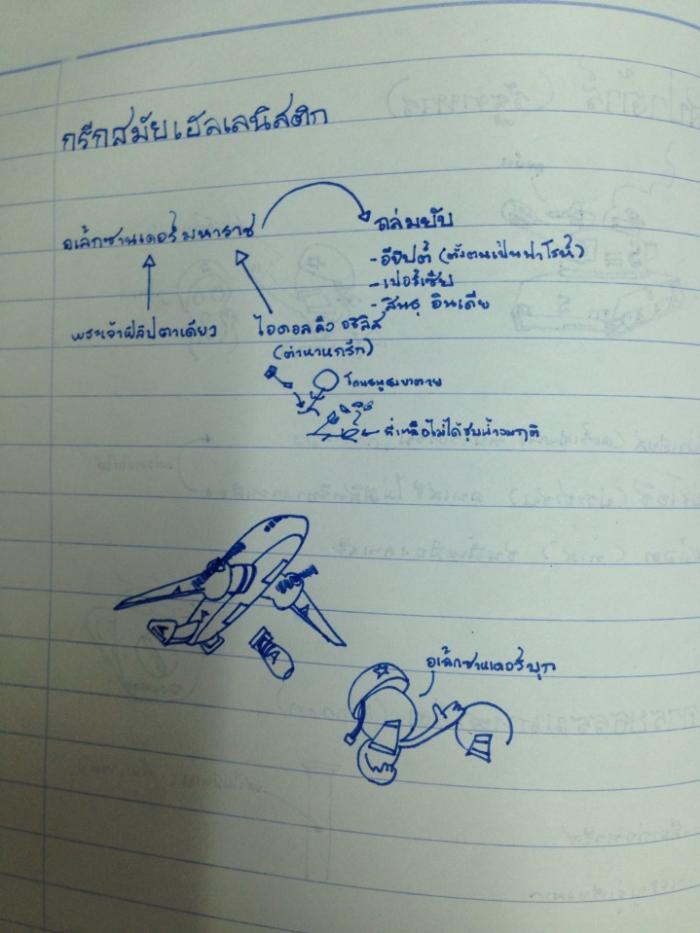 กรีกสมัยเฮลเลนิสติก
อเล็กซานเดอร์มหาราช
ถล่มยับ
-อียิปต์ (ตั้งตนเป็นฟาโรห์)
-เปอร์เซีย
-สินธุ อินเดีย
พระเจ้าฟิลิปตาเดียว
ไอดอลคือ อคิลิส
(ตำหาหกรีก)
โดนธนูธรรมตาย
อเล็กซานเดอร์บุก